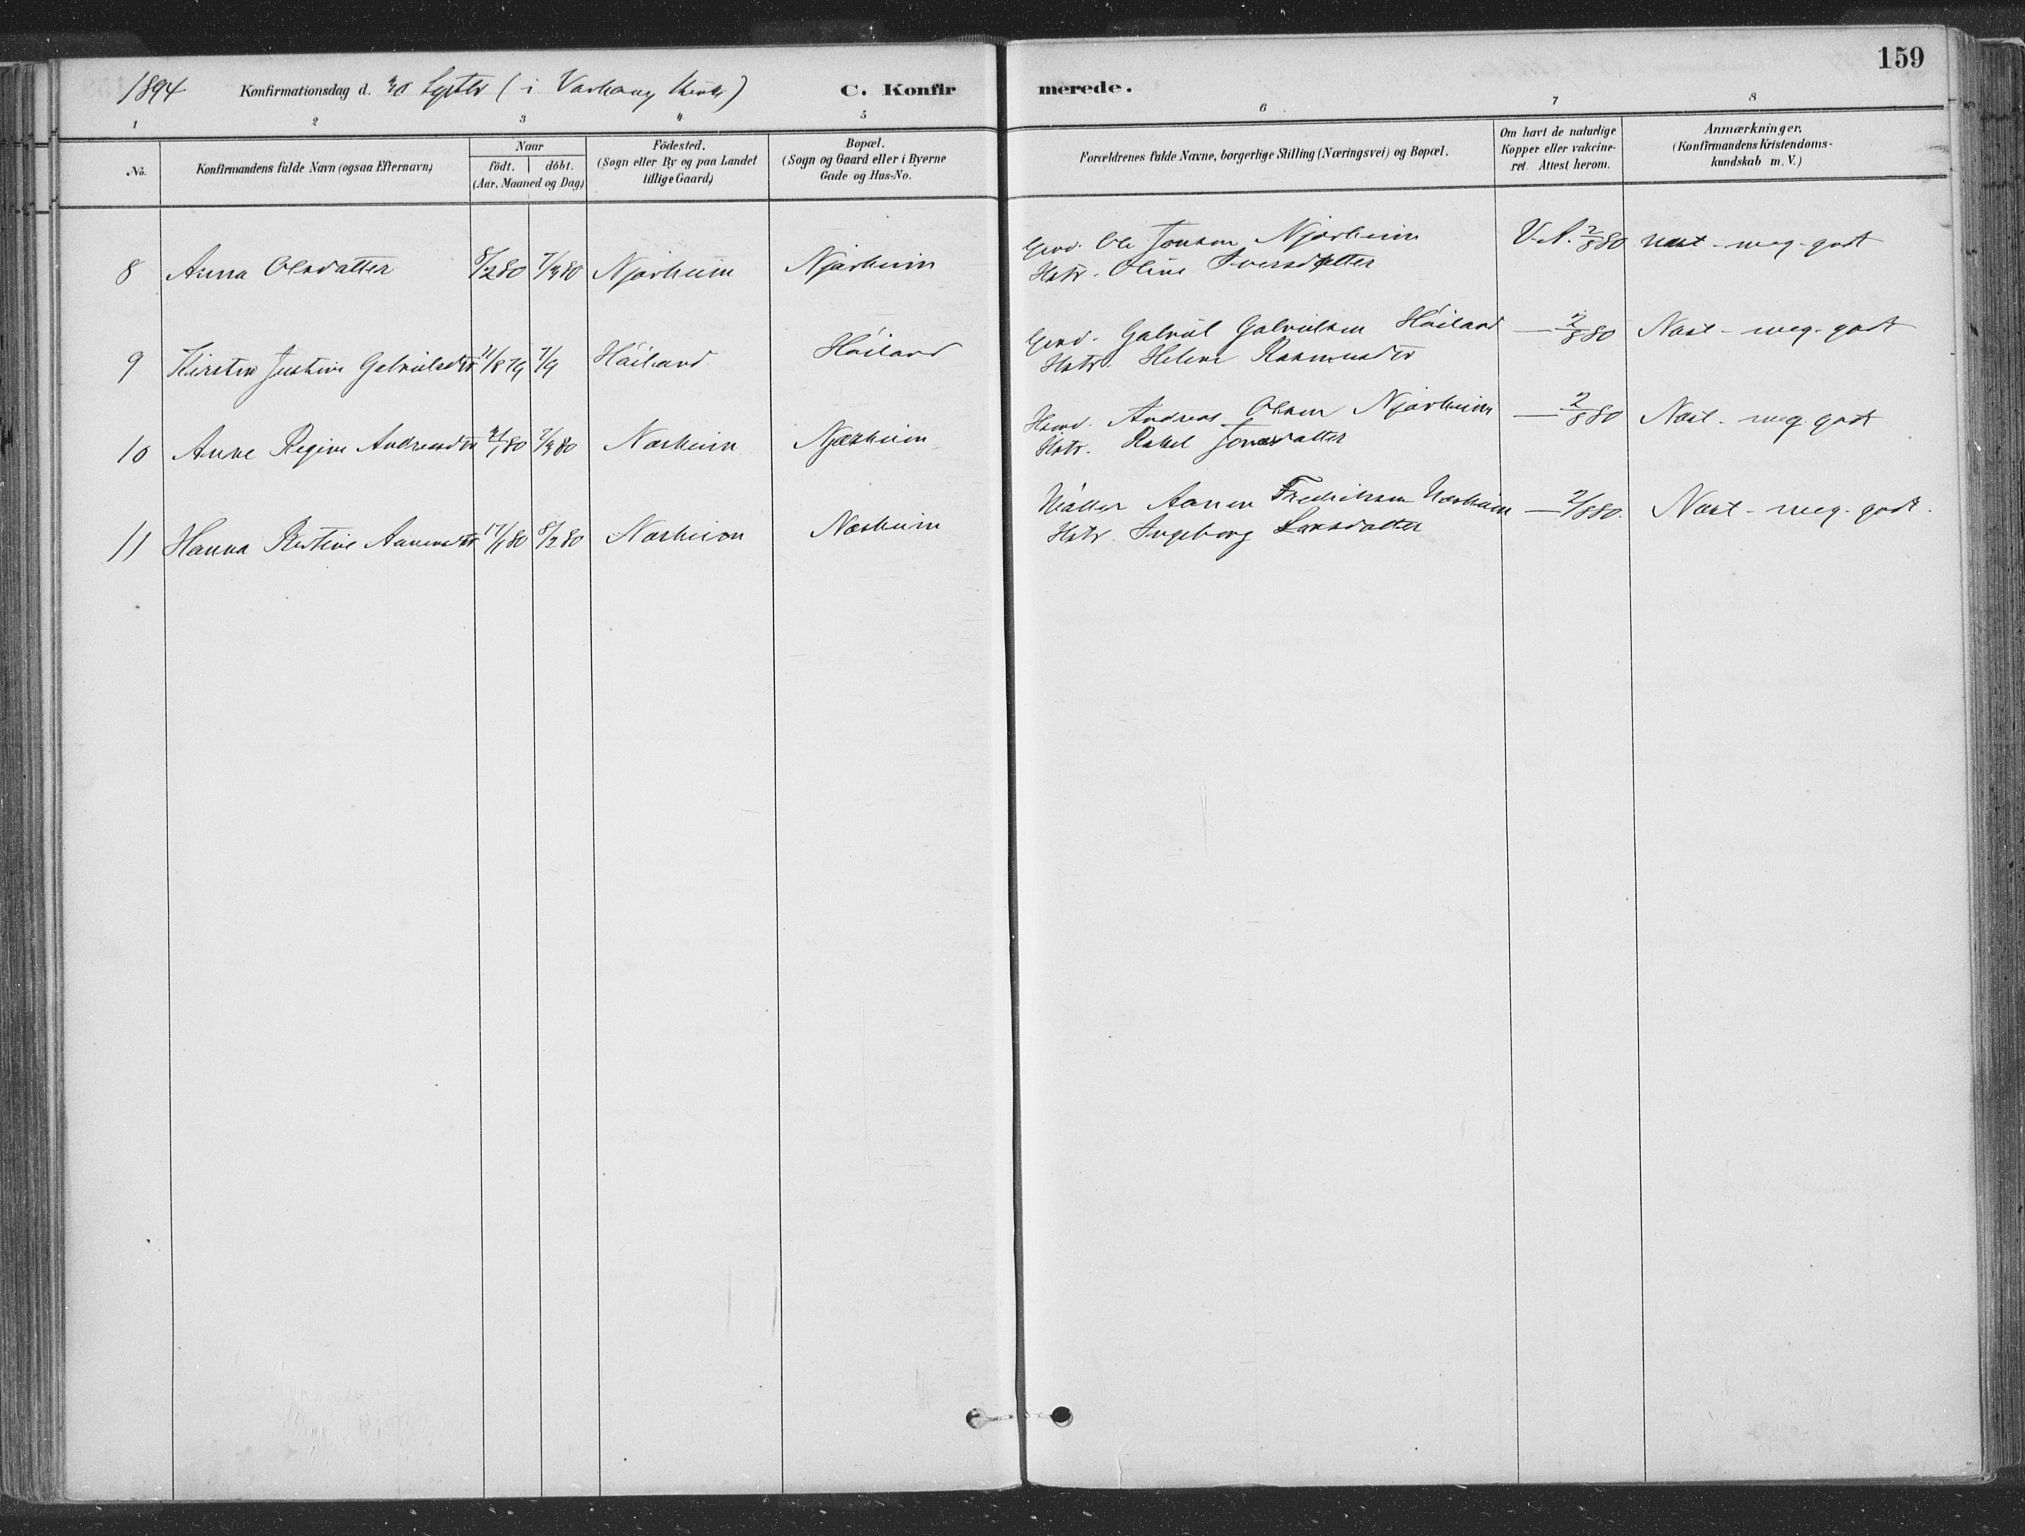 159
1894 Konfirmationsdag d. 30 Septbr ( i Varhaug Kirke) C. Konfir merede.
1 2 3 4 5 6 7 8
No. Konfirmandens fulde Navn (ogsaa Efternavn)
Naar
födt. döbt.
(Aar, Maaned og Dag)
Födested.
(Sogn eller By og paa Landet
tillige Gaard)
Bopæl.
(Sogn og Gaard eller i Byerne
Gade og Hus-No.
Forældrenes fulde Navne, borgerlige Stilling (Næringsvei) og Bopæl.
Om havt de naturlige
Kopper eller vakcine-
ret. Attest herom.
Anmærkninger.
(Konfirmandens Kristendoms-
kundskab m. V.)
8 Anna Olsdatter 8/2 80 7/3 80 Njærheim Njærheim
Grd. Ole Jonsen Njærheim V. A. 2/8 80 Nast - meg. godt
Hstr. Oline Iversdatter
9 Kirsten Justine Gabrielsdtr 11/8 79 7/9 Höiland Höiland
Grd. Gabriel Gabrielsen Höiland — 2/8 80 Nast - meg. godt
Hstr. Helene Rasmusdtr
10 Anne Regine Andreasdtr 80 7/3 80 Nærheim Njærheim
Andreas Olsen Njærheim — 2/8 80 Nast - meg. godt
Hstr. Rakel Jonasdatter
11 Hanna Kristine Aanensdtr 17/1 80 8/2 80 Nærheim Nærheim
Möller Aanen Fredriksen Nærheim — 2/8 80. Nast - meg. godt.
Hstr. Ingeborg Larsdatter